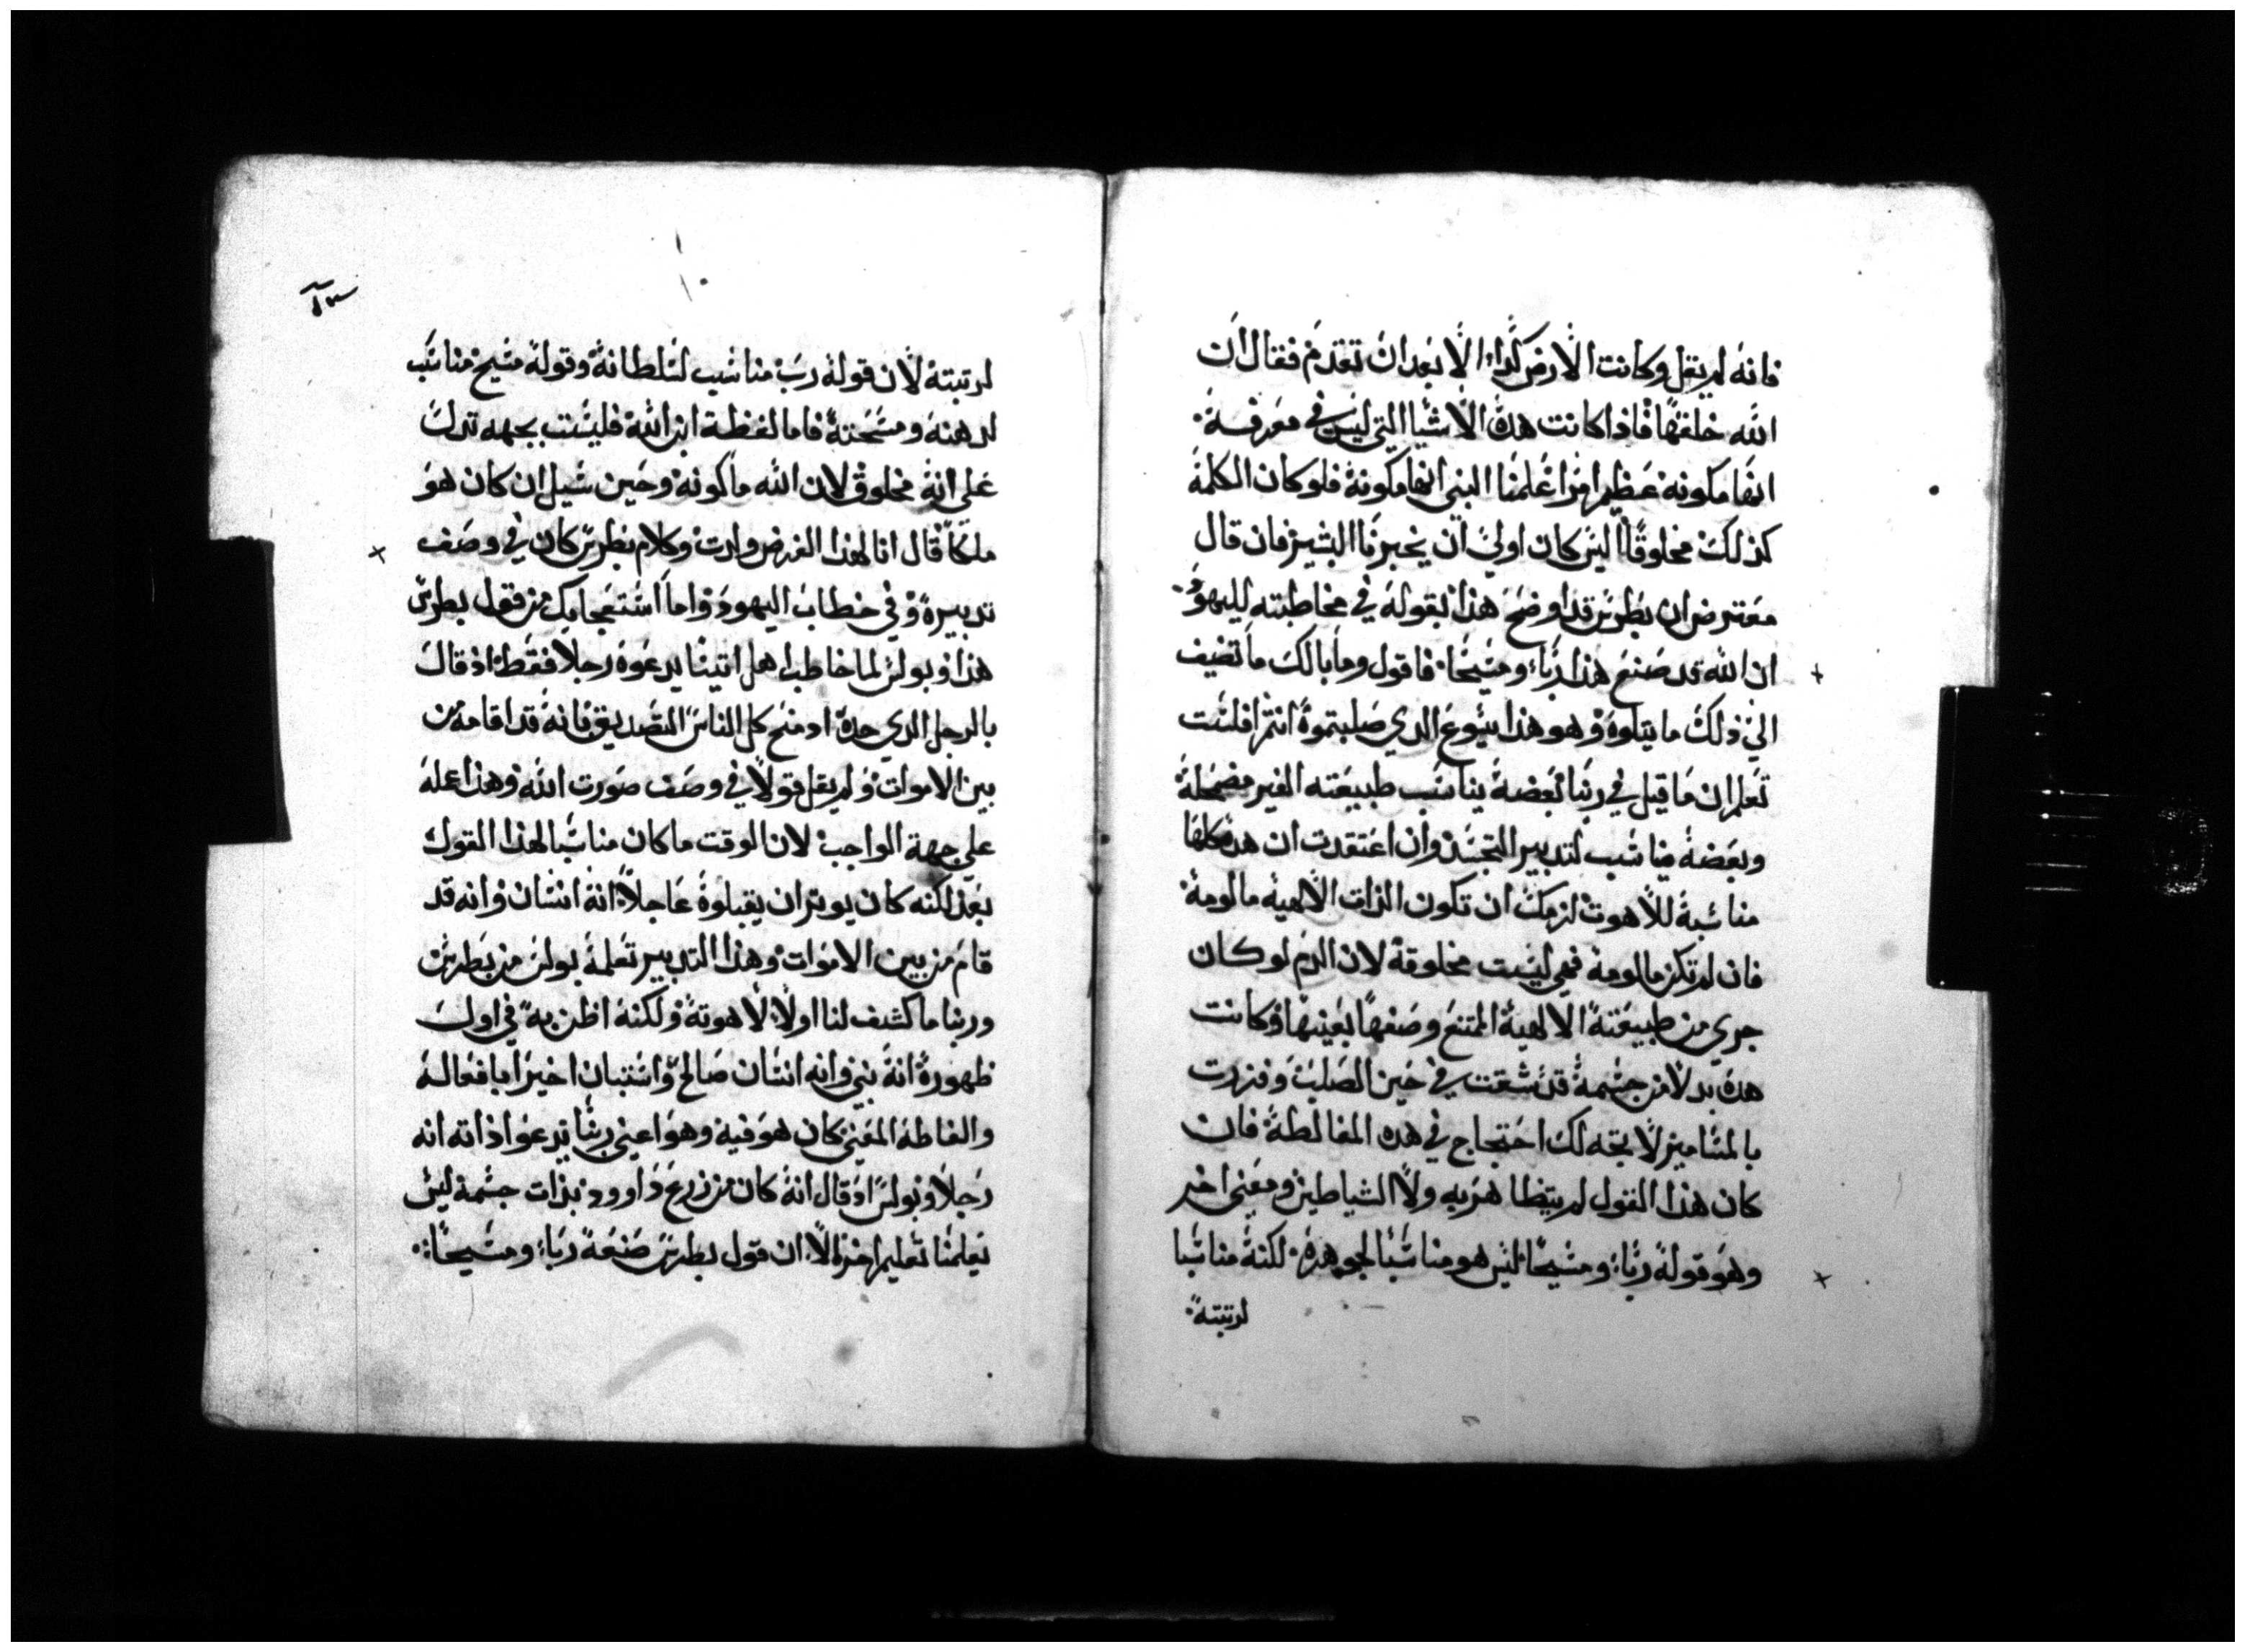 فانه لم يقل وكانت الارض كذا الا بعد ان تقدم فقال ان
الله خلقها فاذا كانت هذه الاشيا التي ليس في معرفة
انها مكونة عظيم امرا علمنا النبي انها مكونة فلو كان الكلمة
كذلك مخلوقا اليس كان اولي ان يخبرنا البشير فان قال
معترض ان بطرس قد اوضح هذا بقوله في مخاطبته لليهود
ان الله قد صنع هذا ربا ومسيحا فاقول وما بالك ما تضيف
الي ذلك ما يتلوه وهو هذا يسوع الدي صلبتموه انتم افلست
تعلم ان ما قيل في ربنا بعضه يناسب طبيعته الغير مضمحلة
وبعضه يناسب لتدبير التجسد وان اعتقدت ان هده كلها
مناسبة للاهوت لزمك ان تكون الذات الالهية مالومة
فان لم تكن مالومة فهي ليست مخلوقة لان الدم لو كان
جري من طبيعته الالهية الممتنع وصفها بعينها وكانت
هده بدلا من جسمه قد شققت في حين الصليب وفزرت
بالمسامير لا تجه لك احتجاج في هده المغالطة فان
كان هذا القول لم يتظاهر به ولا الشياطين ومعني اخر
وهو قوله ربا ومسيحا ليس هو مناسبا لجوهره لكنه مناسبا
لرتبته
لرتبته لان قوله رب مناسب لسلطانه وقوله مسيح مناسب
لدهنه ومسحته فاما لفظة ابن الله فليست بجهه تدل
علي انه مخلوق لان الله ما كونه وحين سيل ان كان هو
ملكا قال انا لهذا الغرض وادت وكلام بطرس كان في وصف
تدبيره وفي خطاب اليهود واما استعجابك من قول بطرس
هذا وبولس لما خاطب اهل اتينا يدعوه رجلا فقط اذ قال
بالرجل الدي حده اد منح كل الناس التصديق فانه قد اقامه من
بين الاموات ولم يقل قولا في وصف صورت الله وهذا عله
علي جهة الواجب لان الوقت ما كان مناسبا لهذا القول
بعد لكنه كان يوتر ان يقبلوه عاجلا انه انسان وانه قد
قام من بين الاموات وهذا التدبير تعلمه بولس من بطرس
وربنا ما كشف لنا اولا لاهوته ولكنه اظن به في اول
ظهوره انه نبي وانه انسان صالح واستبان اخيرا بافعاله
والفاظه المعني كان هو فيه وهو اعني ربنا يدعوا ذاته انه
رجلا وبولس اد قال انه كان من زرع داوود بذات جسمه ليس
يعلمنا تعليم اخر الا ان قول بطرس صنعه ربا ومسيحا